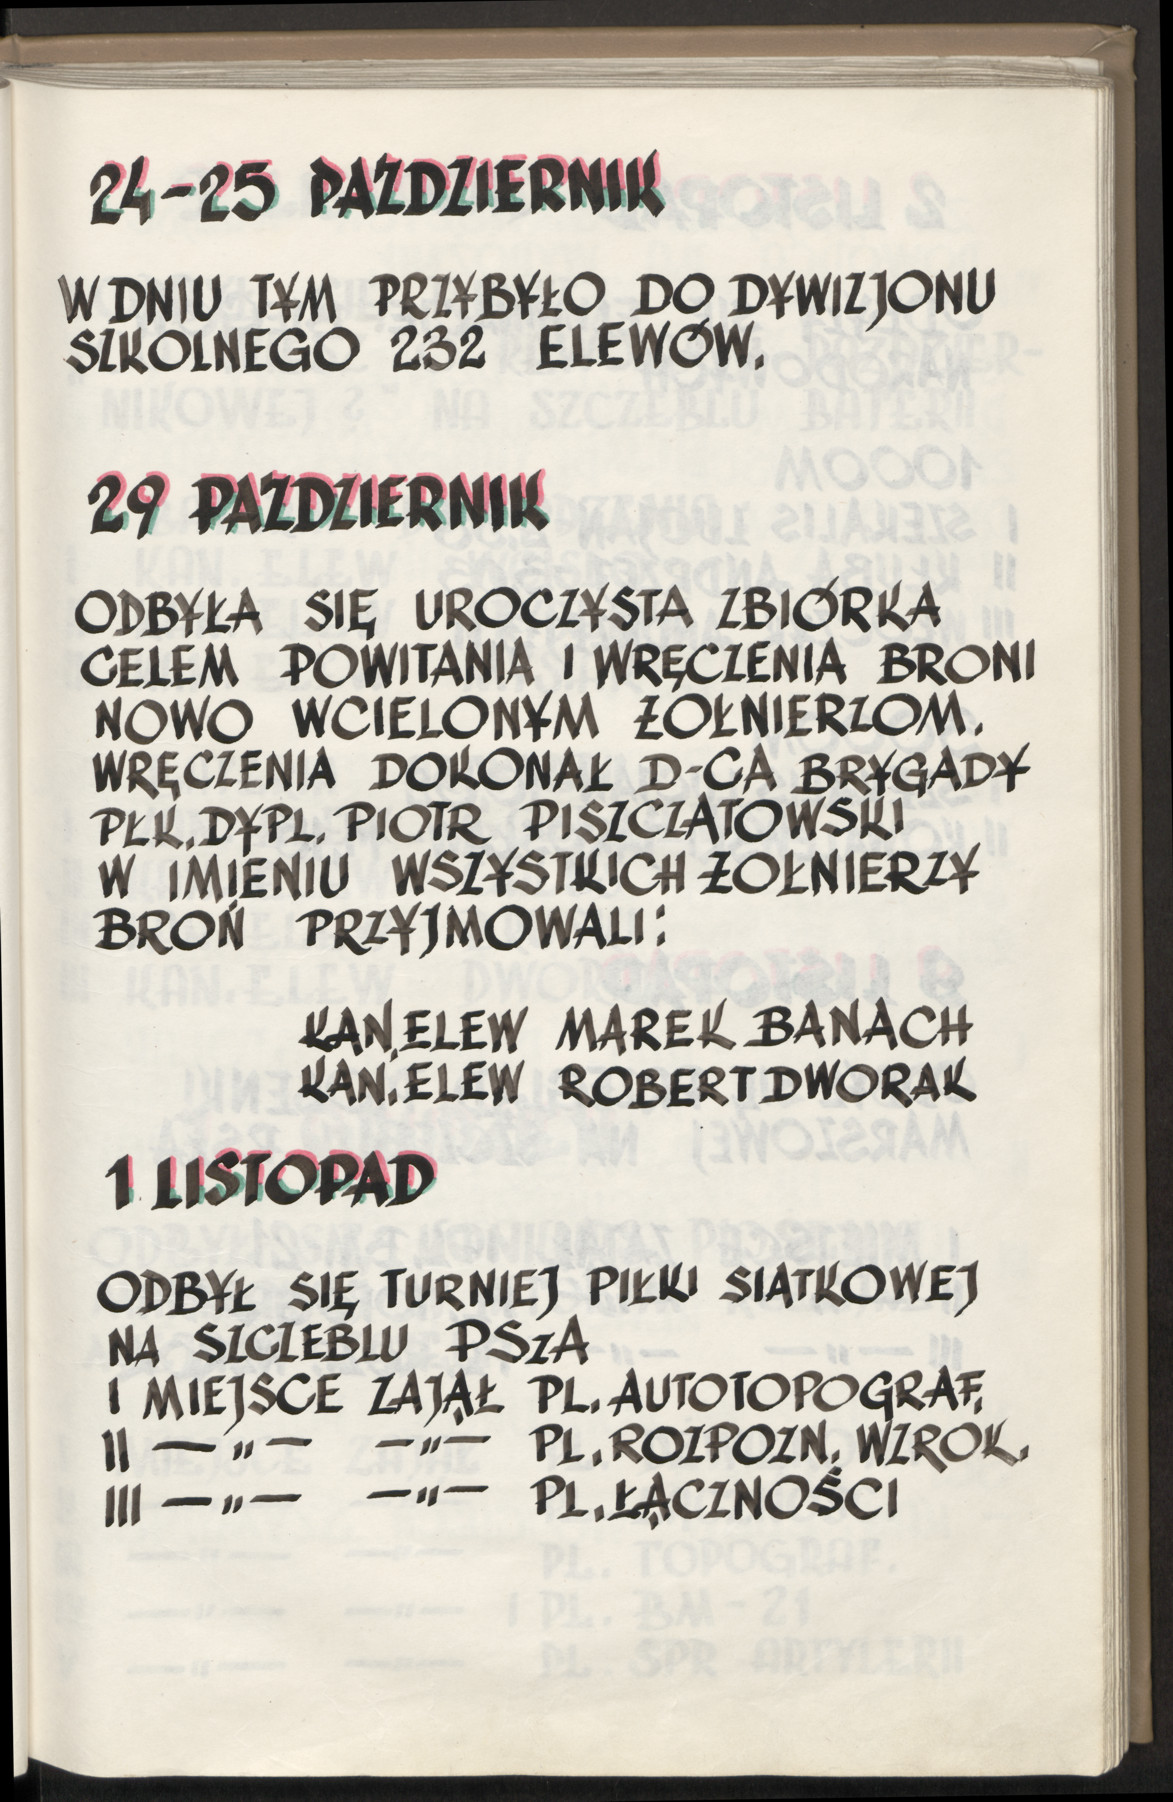 24-25 PAŹDZIERNIK
W DNIU TYM PRZYBYŁO DO DYWIZJONU
SZKOLNEGO 232 ELEWÓW.
29 PAŹDZIERNIK
ODBYŁA SIĘ UROCZYSTA ZBIÓRKA
CELEM POWITANIA I WRĘCZENIA BRONI
NOWO WCIELONYM ŻOŁNIERZOM.
WRĘCZENIA DOKONAŁ D-CA BRYGADY
PŁK. DYPL. PIOTR PISZCZATOWSKI
W IMIENIU WSZYSTKICH ŻOŁNIERZY
BROŃ PRZYJMOWALI:
KAN. ELEW MAREK BANACH
KAN. ELEW ROBERT DWORAK
1 LISTOPAD
ODBYŁ SIĘ TURNIEJ PIŁKI SIATKOWEJ
NA SZCZEBLU PSzA
I MIEJSCE ZAJĄŁ PL. AUTOTOPOGRAF.
II —„— —„— PL. ROZPOZN. WZROK.
III —„— —„— PL. ŁĄCZNOŚCI